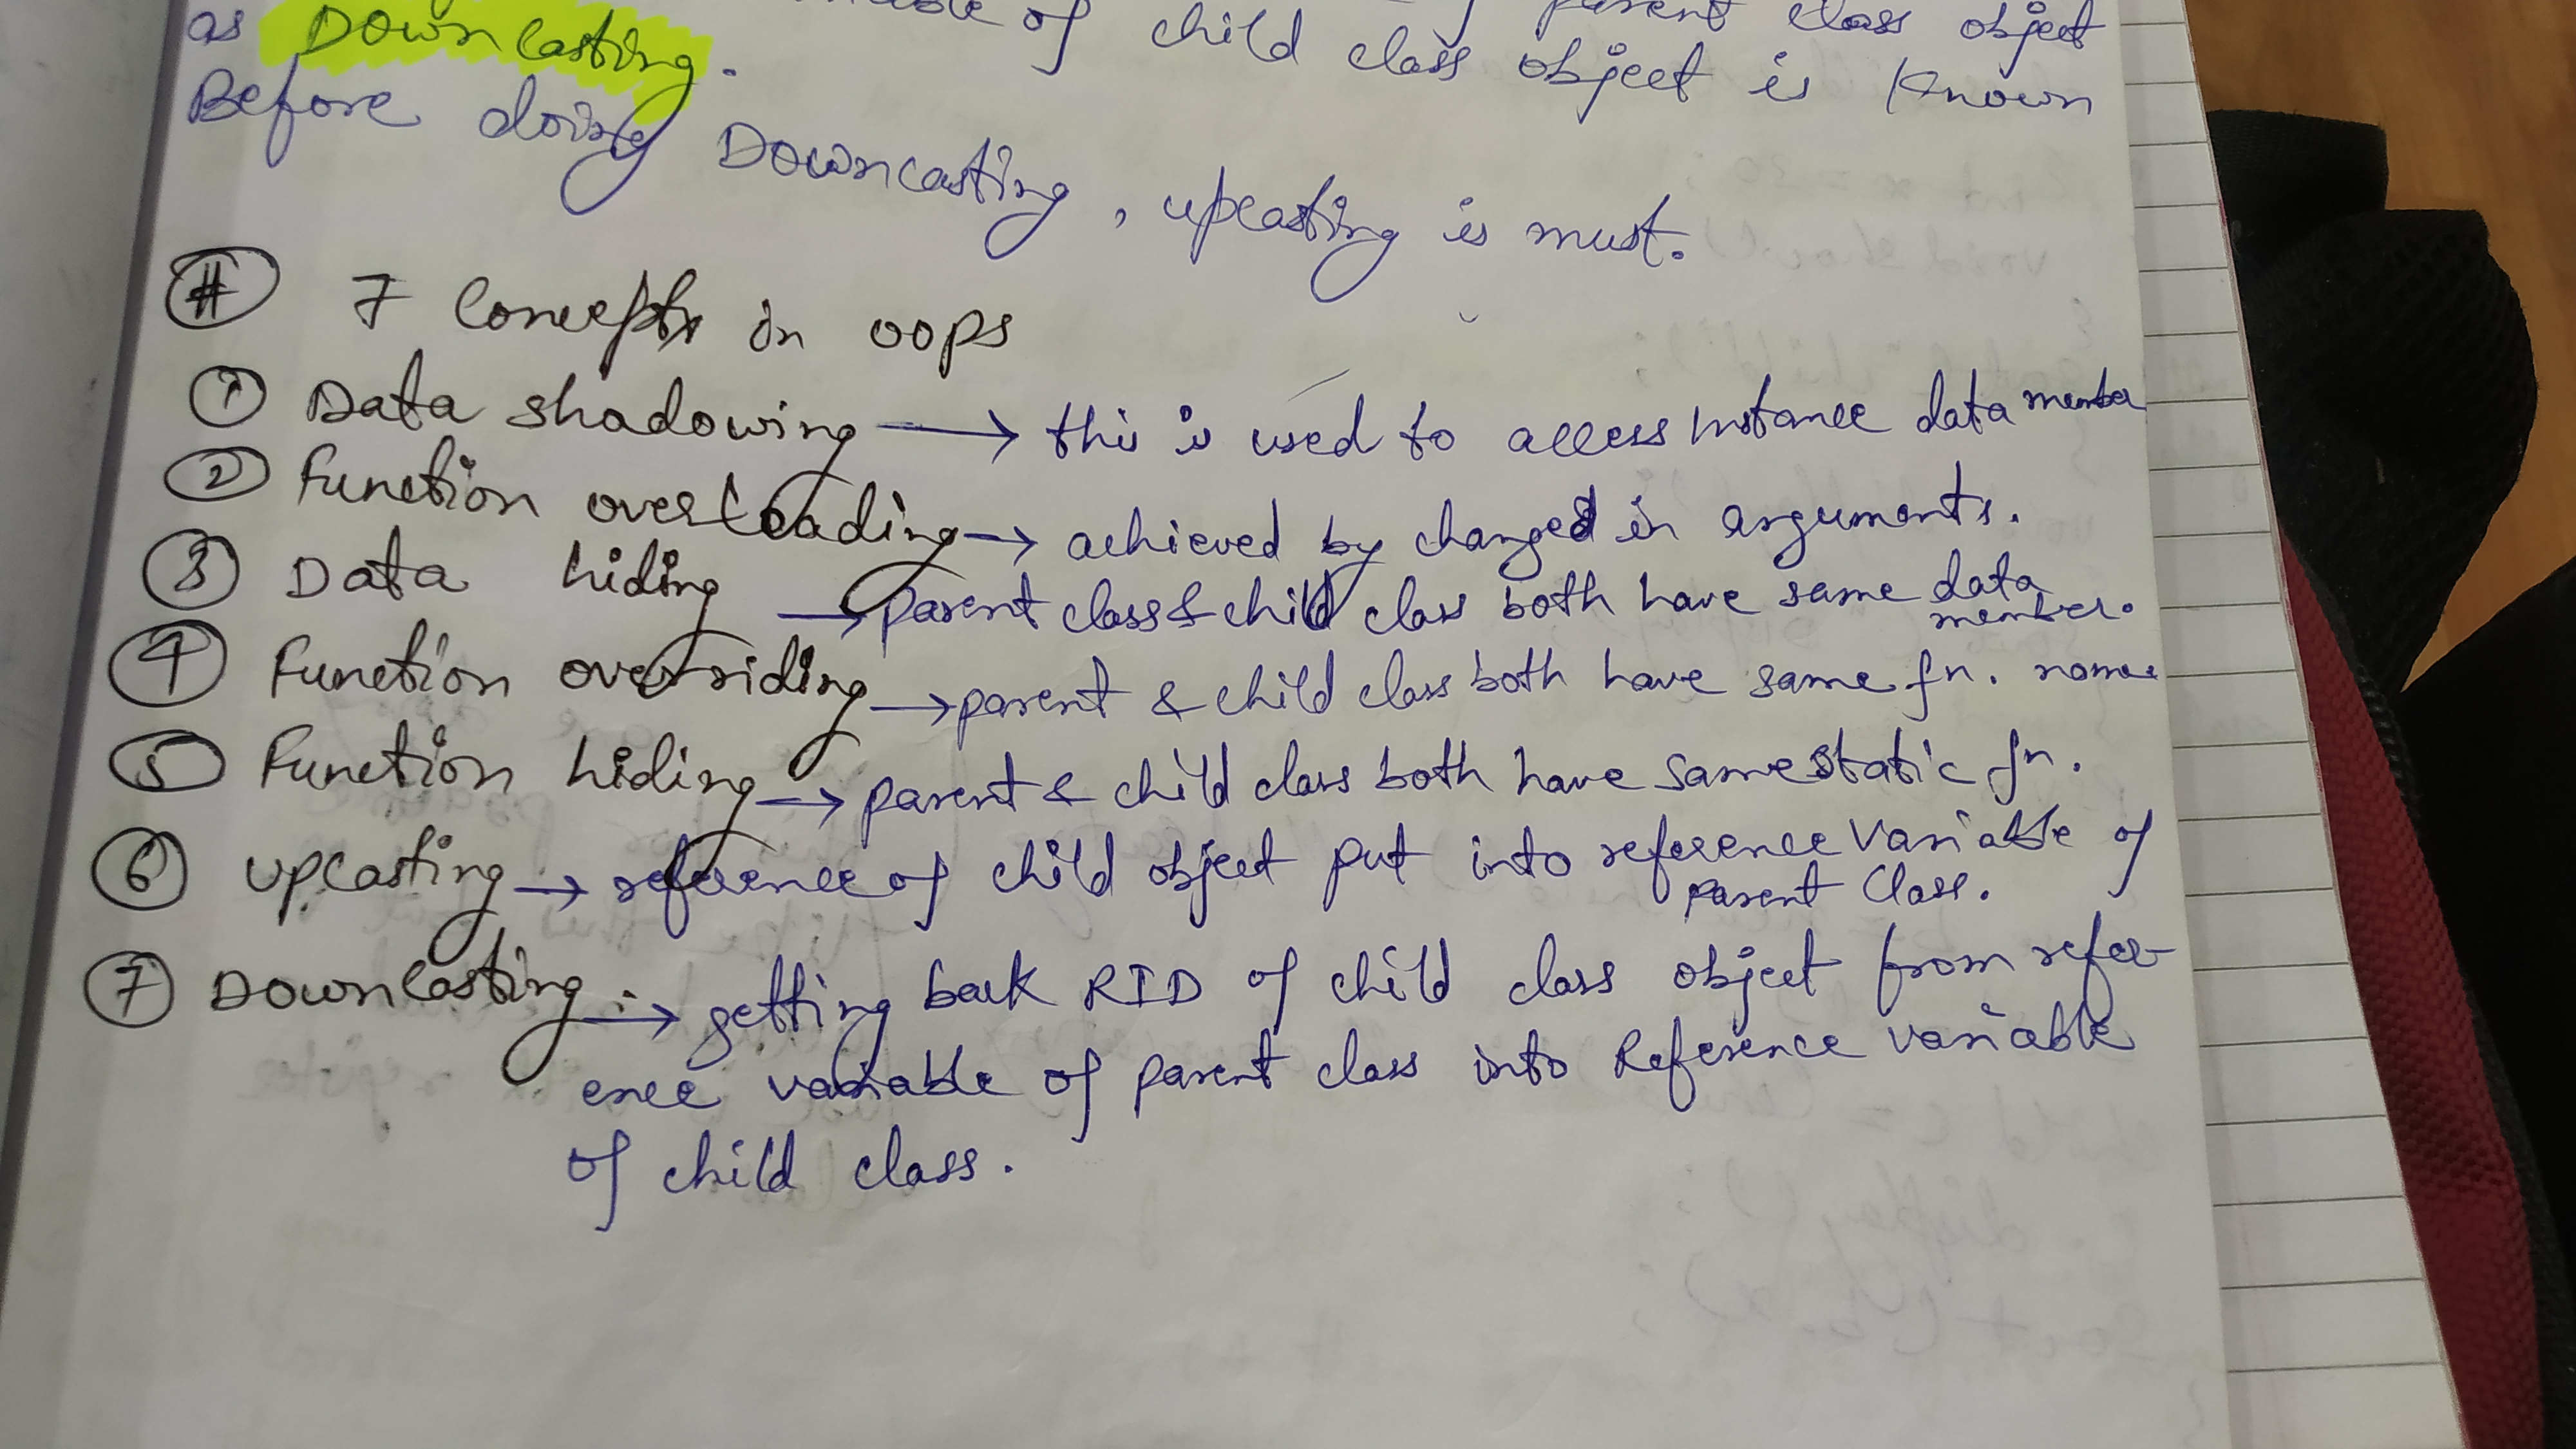 of parent class object
as Downcasting. of child class object is known
Before doing Downcasting, upcasting is must.
# 7 Concepts in oops
① Data shadowing → this is used to access instance data member
② Function overloading → achieved by changed in arguments.
③ Data hiding → parent class & child class both have same data member.
④ Function overriding → parent & child class both have same fn. name
⑤ Function hiding → parent & child class both have same static fn.
⑥ upcasting → reference of child object put into reference variable of parent class.
⑦ Downcasting → getting back RID of child class object from refer-
ence variable of parent class into Reference variable
of child class.